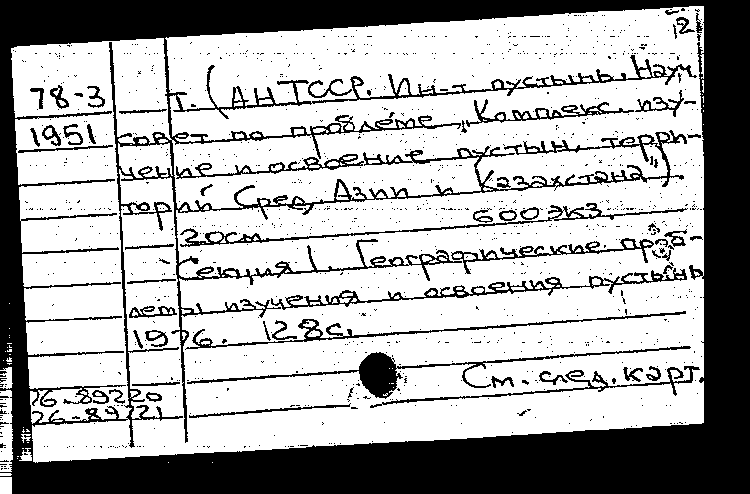 12
78-3 т. (АН ТССР. Ин-т пустынь. Науч.
1951 совет по проблеме „Комплекс. изу-
чение и освоение пустын. терри-
торий Сред. Азии и Казахстана").
20см. 600 экз.
Секция 1. Географические проб-
лемы изучения и освоения пустынь
1976. 128с.
См. след. карт.
76-89220
76-89221